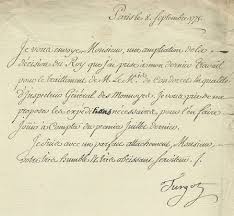 Paris le 8. Septembre 177
Je vous envoye, Monsieur, une ampliation de la
décision du Roy que j'ai prise à mon dernier travail
pour le traittement de M. le M.is de Condorcet en qualité
d'Inspecteur Général des Monnoyes. Je vous prie de me
proposer les expéditions nécessaires pour l'en faire
jouir à compter du premier Juillet dernier.
Je suis avec un parfait attachement, Monsieur,
votre très humble et très obéissant serviteur ./.
Turgot